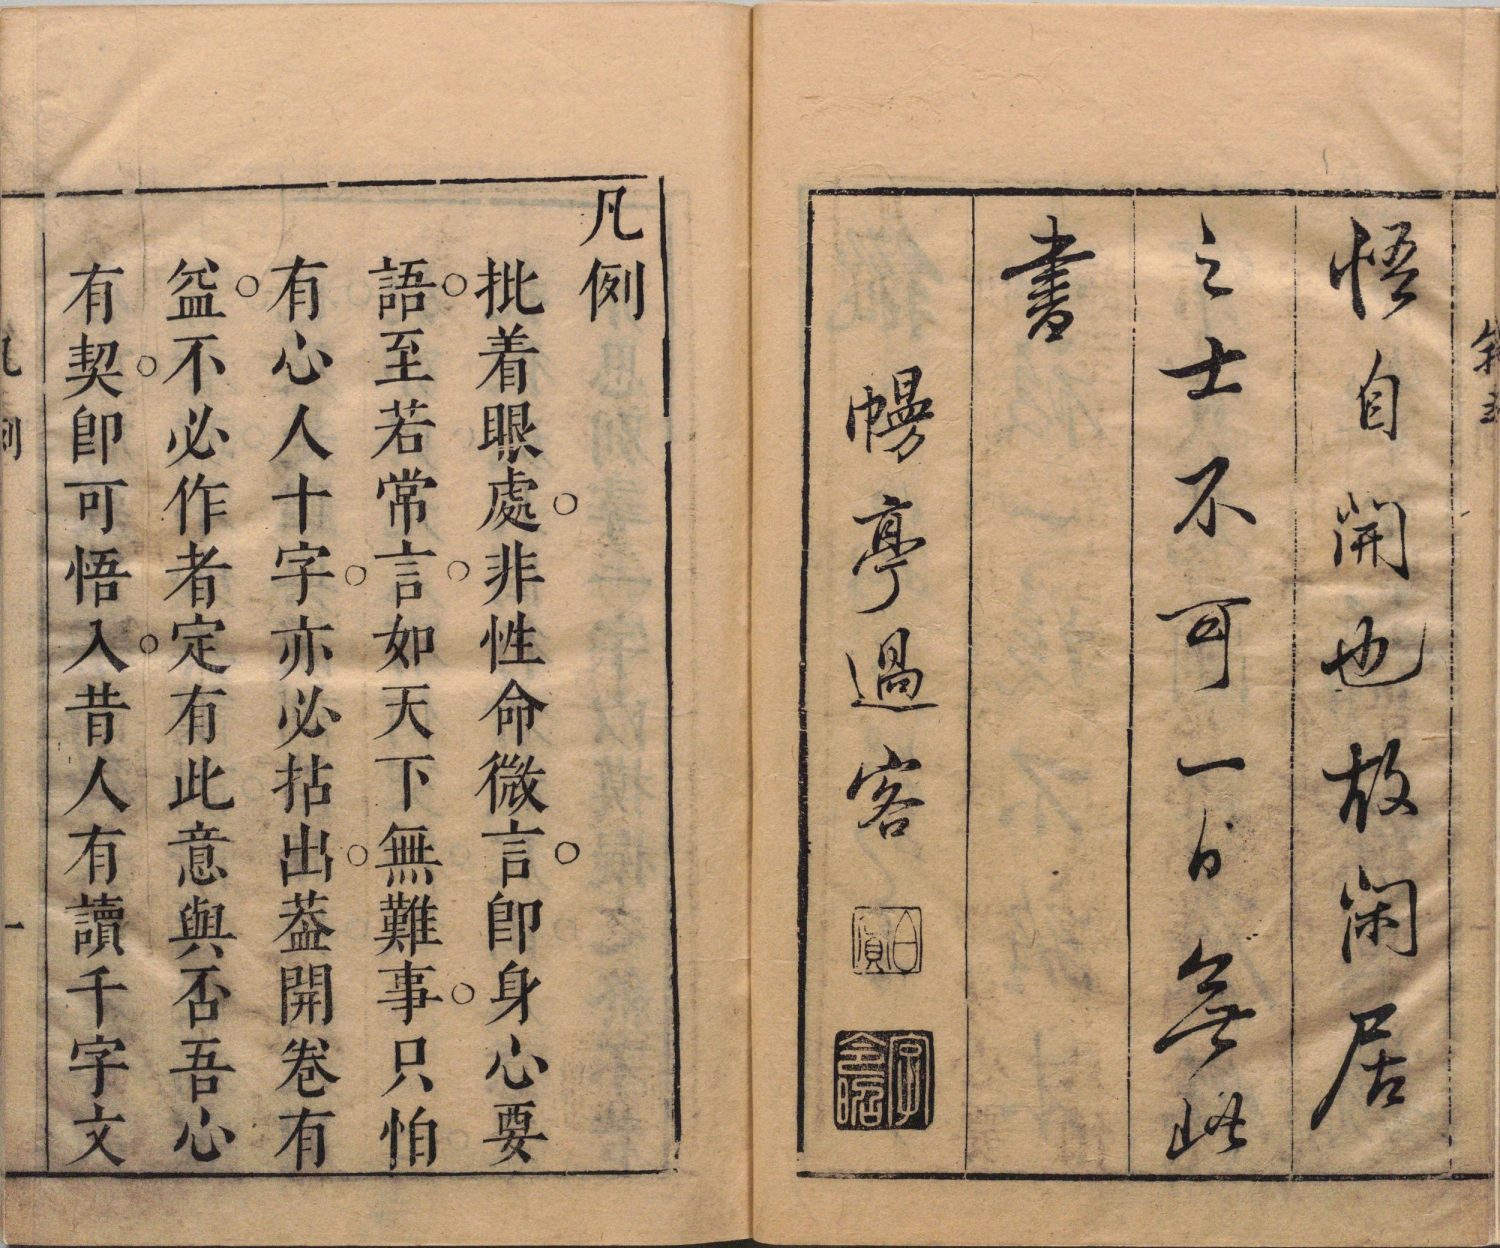 悟自開也故閑居
之士不可一日無此
書
幔亭過客
白賓
字令昭
凡例
批着眼處非性命微言卽身心要
語至若常言如天下無難事只怕
有心人十字亦必拈出葢開卷有
益不必作者定有此意與否吾心
有契卽可悟入昔人有讀千字文
凡例
一